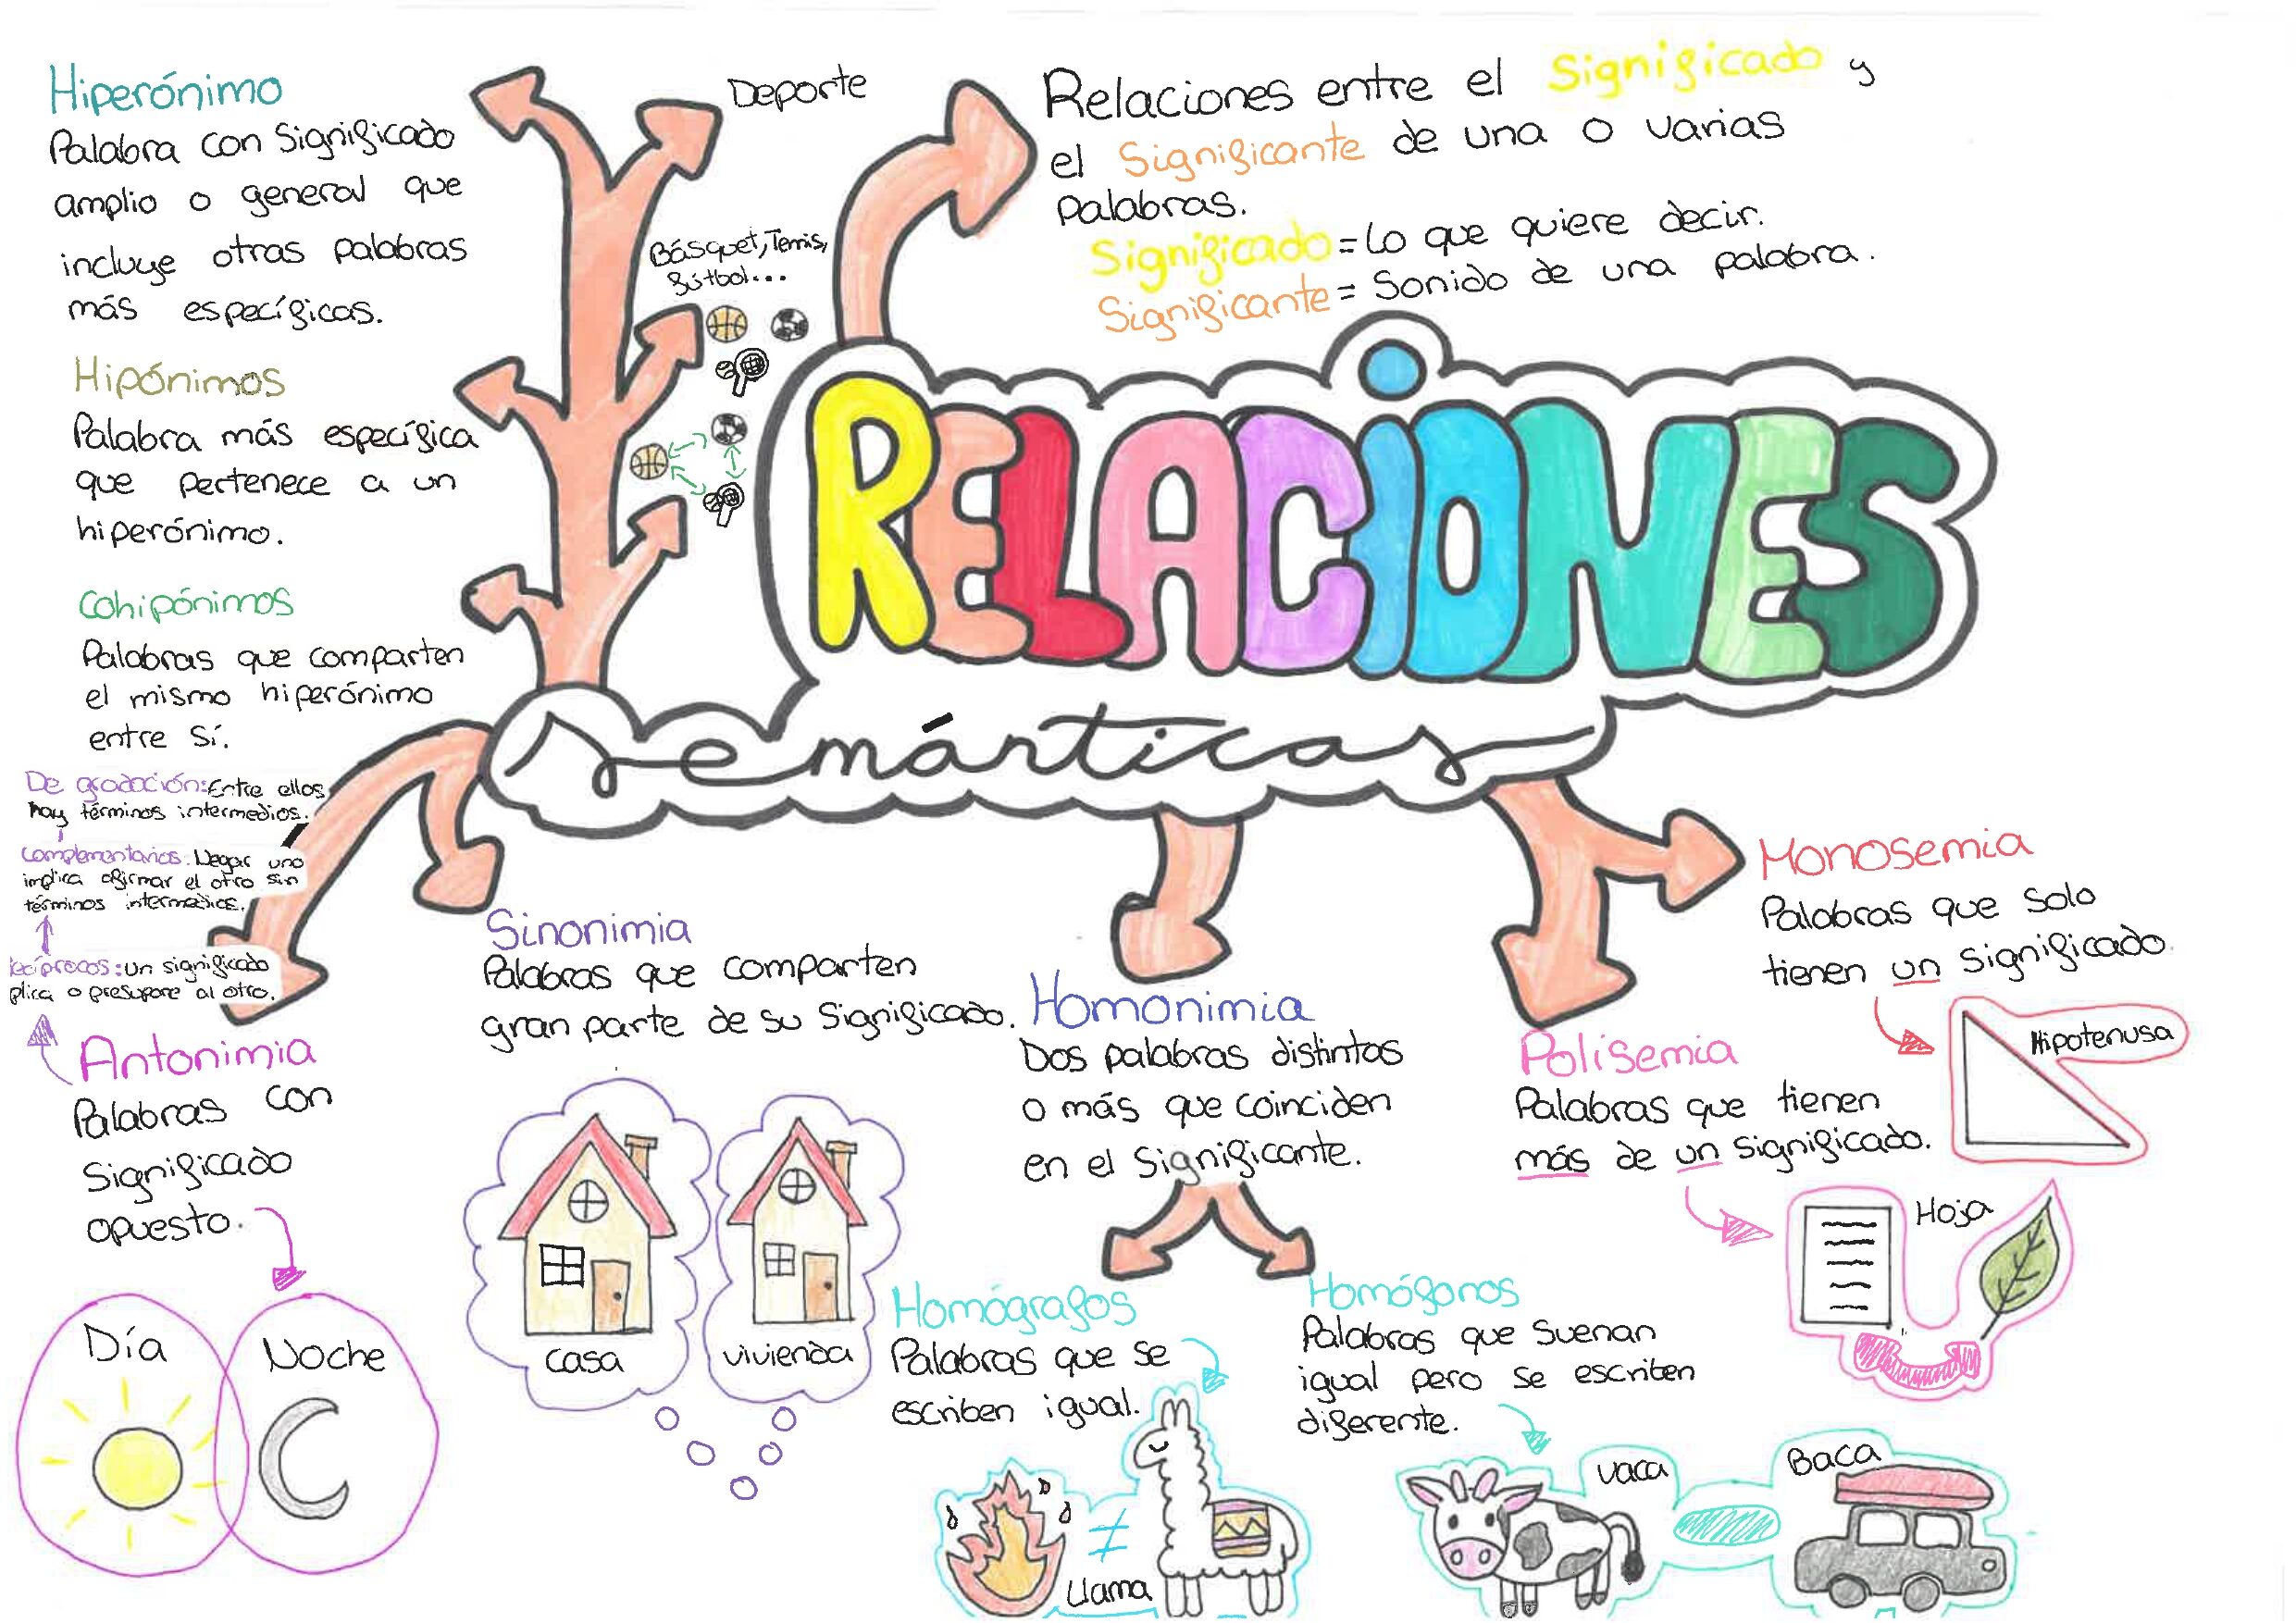 Hiperónimo
Palabra con Significado
amplio o general que
incluye otras palabras
más específicas.
Deporte
Básquet, Tenis,
fútbol...
Hipónimos
Palabra más específica
que pertenece a un
hiperónimo.
Cohipónimos
Palabras que comparten
el mismo hiperónimo
entre Sí.
Relaciones entre el Significado y
el Significante de una o varias
Palabras.
Significado = Lo que quiere decir.
Significante = Sonido de una palabra.
RELACiONES
semánticas
De gradación: Entre ellos
hay términos intermedios.
Complementarios: Negar uno
implica afirmar el otro sin
términos intermedios.
un significado
plica o presupone al otro.
Antonimia
Palabras con
Significado
opuesto.
Día
Noche
Sinonimia
Palabras que comparten
gran parte de su Significado.
casa
vivienda
Homonimia
Dos palabras distintas
o más que coinciden
en el Significante.
Homógrafos
Palabras que se
escriben igual.
≠
Llama
Homófonos
Palabras que Suenan
igual pero se escriben
diferente.
vaca
Baca
Monosemia
Palabras que solo
tienen un significado.
Hipotenusa
Polisemia
Palabras que tienen
más de un significado.
Hoja